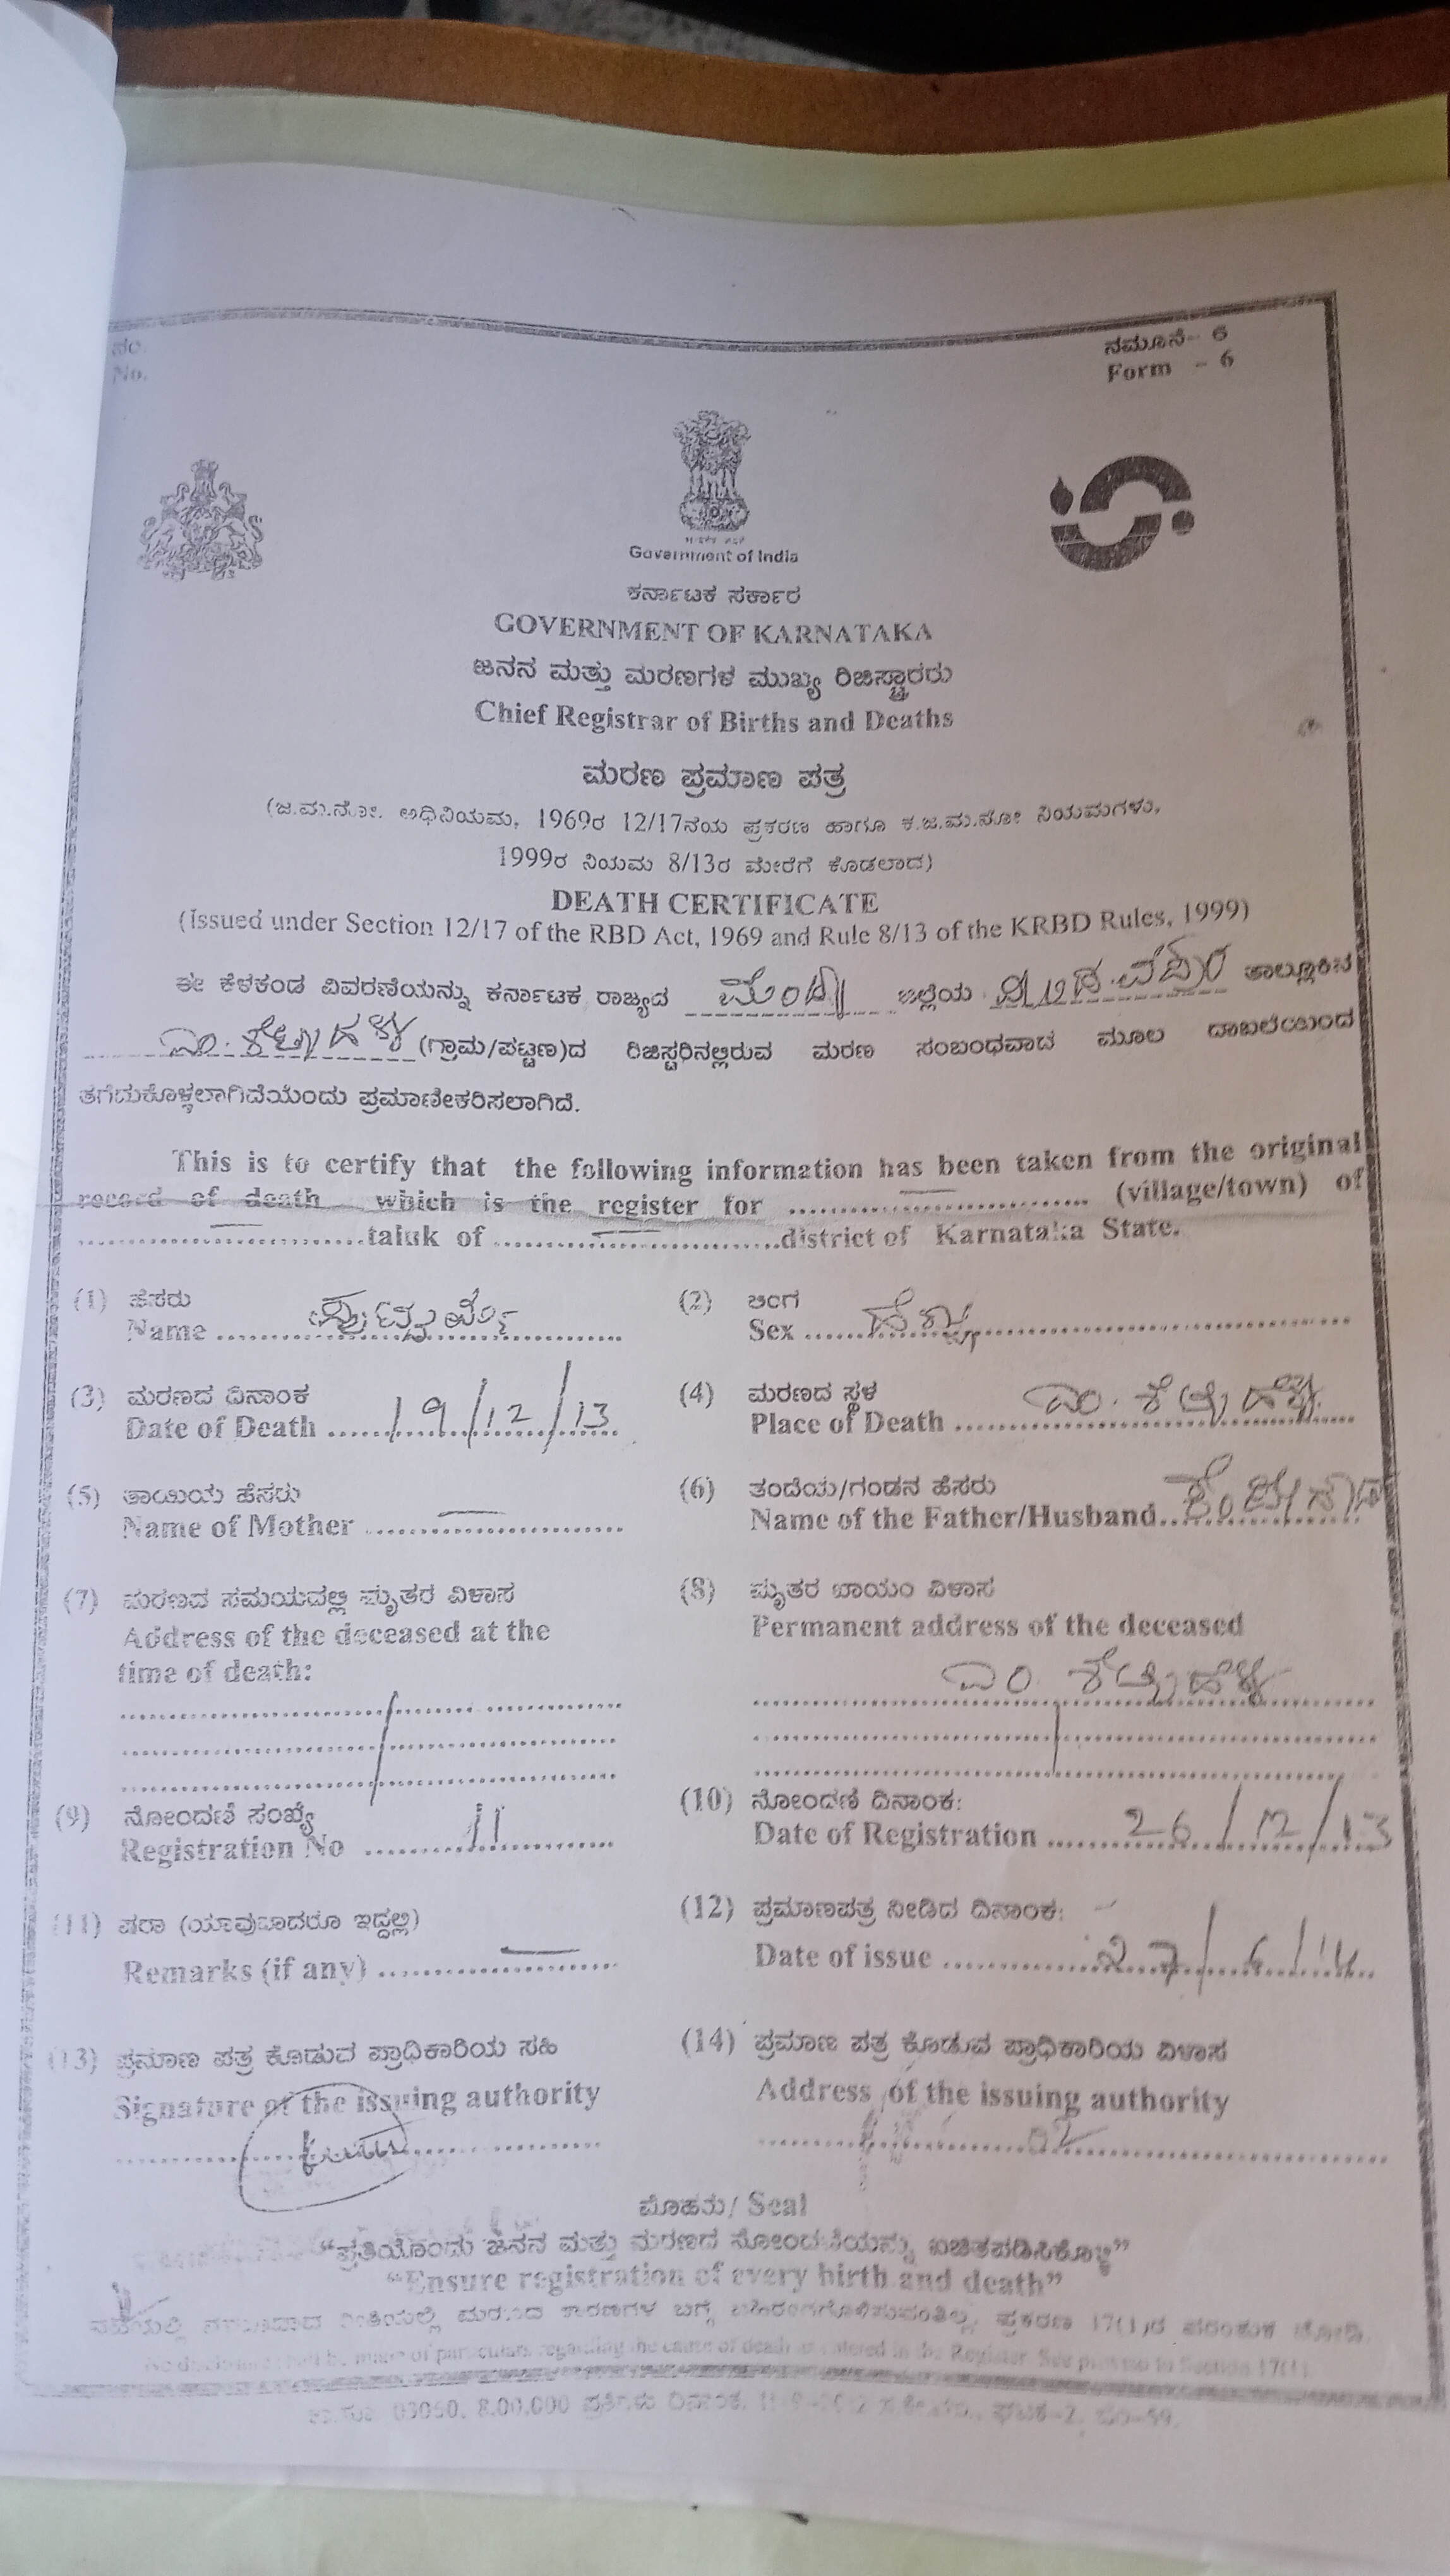 ನಂ.
No.
ನಮೂನೆ- 6
Form - 6
Government of India
ಕರ್ನಾಟಕ ಸರ್ಕಾರ
GOVERNMENT OF KARNATAKA
ಜನನ ಮತ್ತು ಮರಣಗಳ ಮುಖ್ಯ ರಿಜಿಸ್ಟ್ರಾರರು
Chief Registrar of Births and Deaths
ಮರಣ ಪ್ರಮಾಣ ಪತ್ರ
(ಜ.ಮ.ನೋ. ಅಧಿನಿಯಮ, 1969ರ 12/17ನೆಯ ಪ್ರಕರಣ ಹಾಗೂ ಕ.ಜ.ಮ.ನೋ ನಿಯಮಗಳು,
1999ರ ನಿಯಮ 8/13ರ ಮೇರೆಗೆ ಕೊಡಲಾದ)
DEATH CERTIFICATE
(Issued under Section 12/17 of the RBD Act, 1969 and Rule 8/13 of the KRBD Rules, 1999)
ಈ ಕೆಳಕಂಡ ವಿವರಣೆಯನ್ನು ಕರ್ನಾಟಕ ರಾಜ್ಯದ ಮಂಡ್ಯ ಜಿಲ್ಲೆಯ ತಾಲ್ಲೂಕಿನ
ಎಂ. ಶೆಟ್ಟಹಳ್ಳಿ (ಗ್ರಾಮ/ಪಟ್ಟಣ)ದ ರಿಜಿಸ್ಟರಿನಲ್ಲಿರುವ ಮರಣ ಸಂಬಂಧವಾದ ಮೂಲ ದಾಖಲೆಯಿಂದ
ತೆಗೆದುಕೊಳ್ಳಲಾಗಿದೆಯೆಂದು ಪ್ರಮಾಣೀಕರಿಸಲಾಗಿದೆ.
This is to certify that the following information has been taken from the original
record of death which is the register for .......... (village/town) of
.......... taluk of .......... district of Karnataka State.
(1) ಹೆಸರು
Name ..........
(2) ಲಿಂಗ
Sex .......... ಹೆಣ್ಣು
(3) ಮರಣದ ದಿನಾಂಕ
Date of Death .......... 19/12/13
(4) ಮರಣದ ಸ್ಥಳ
Place of Death .......... ಎಂ. ಶೆಟ್ಟಹಳ್ಳಿ
(5) ತಾಯಿಯ ಹೆಸರು
Name of Mother .......... —
(6) ತಂದೆಯ/ಗಂಡನ ಹೆಸರು
Name of the Father/Husband..........
(7) ಮರಣದ ಸಮಯದಲ್ಲಿ ಮೃತರ ವಿಳಾಸ
Address of the deceased at the
time of death:
(8) ಮೃತರ ಖಾಯಂ ವಿಳಾಸ
Permanent address of the deceased
ಎಂ. ಶೆಟ್ಟಹಳ್ಳಿ
(9) ನೋಂದಣಿ ಸಂಖ್ಯೆ
Registration No .......... 11
(10) ನೋಂದಣಿ ದಿನಾಂಕ:
Date of Registration .......... 26/12/13
(11) ಷರಾ (ಯಾವುದಾದರೂ ಇದ್ದಲ್ಲಿ)
Remarks (if any) .......... —
(12) ಪ್ರಮಾಣಪತ್ರ ನೀಡಿದ ದಿನಾಂಕ:
Date of issue .......... 27/6/14
(13) ಪ್ರಮಾಣ ಪತ್ರ ಕೊಡುವ ಪ್ರಾಧಿಕಾರಿಯ ಸಹಿ
Signature of the issuing authority
(14) ಪ್ರಮಾಣ ಪತ್ರ ಕೊಡುವ ಪ್ರಾಧಿಕಾರಿಯ ವಿಳಾಸ
Address of the issuing authority
ಮೊಹರು/ Seal
“ಪ್ರತಿಯೊಂದು ಜನನ ಮತ್ತು ಮರಣದ ನೋಂದಣಿಯನ್ನು ಖಚಿತಪಡಿಸಿಕೊಳ್ಳಿ”
“Ensure registration of every birth and death”
ಮರಣದ ಕಾರಣಗಳ ಬಗ್ಗೆ ಬಹಿರಂಗಗೊಳಿಸುವಂತಿಲ್ಲ. ಪ್ರಕರಣ 17(1)ರ ಪರಂತುಕ ನೋಡಿ.
No disclosure shall be made of particulars regarding the cause of death as entered in the Register. See proviso to Section 17(1).
03050, 8,00,000 ಪ್ರತಿಗಳು ದಿನಾಂಕ,